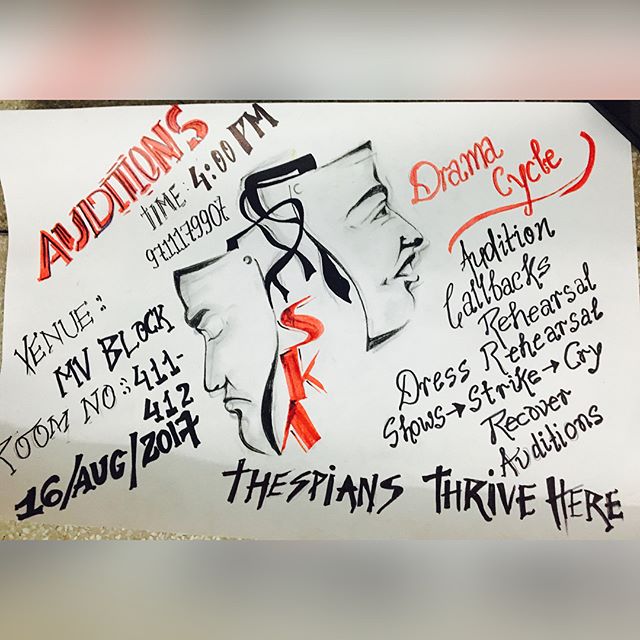 AUDITIONS
TIME: 4:00 PM
9711179907
VENUE::
MV BLOCK
ROOM NO:: 411-
412
16/AUG/2017
Drama
Cycle
Audition
Callbacks
Rehearsal
Dress Rehearsal
Shows→Strike→Cry
Recover
Auditions
THESPIANS THRIVE HERE